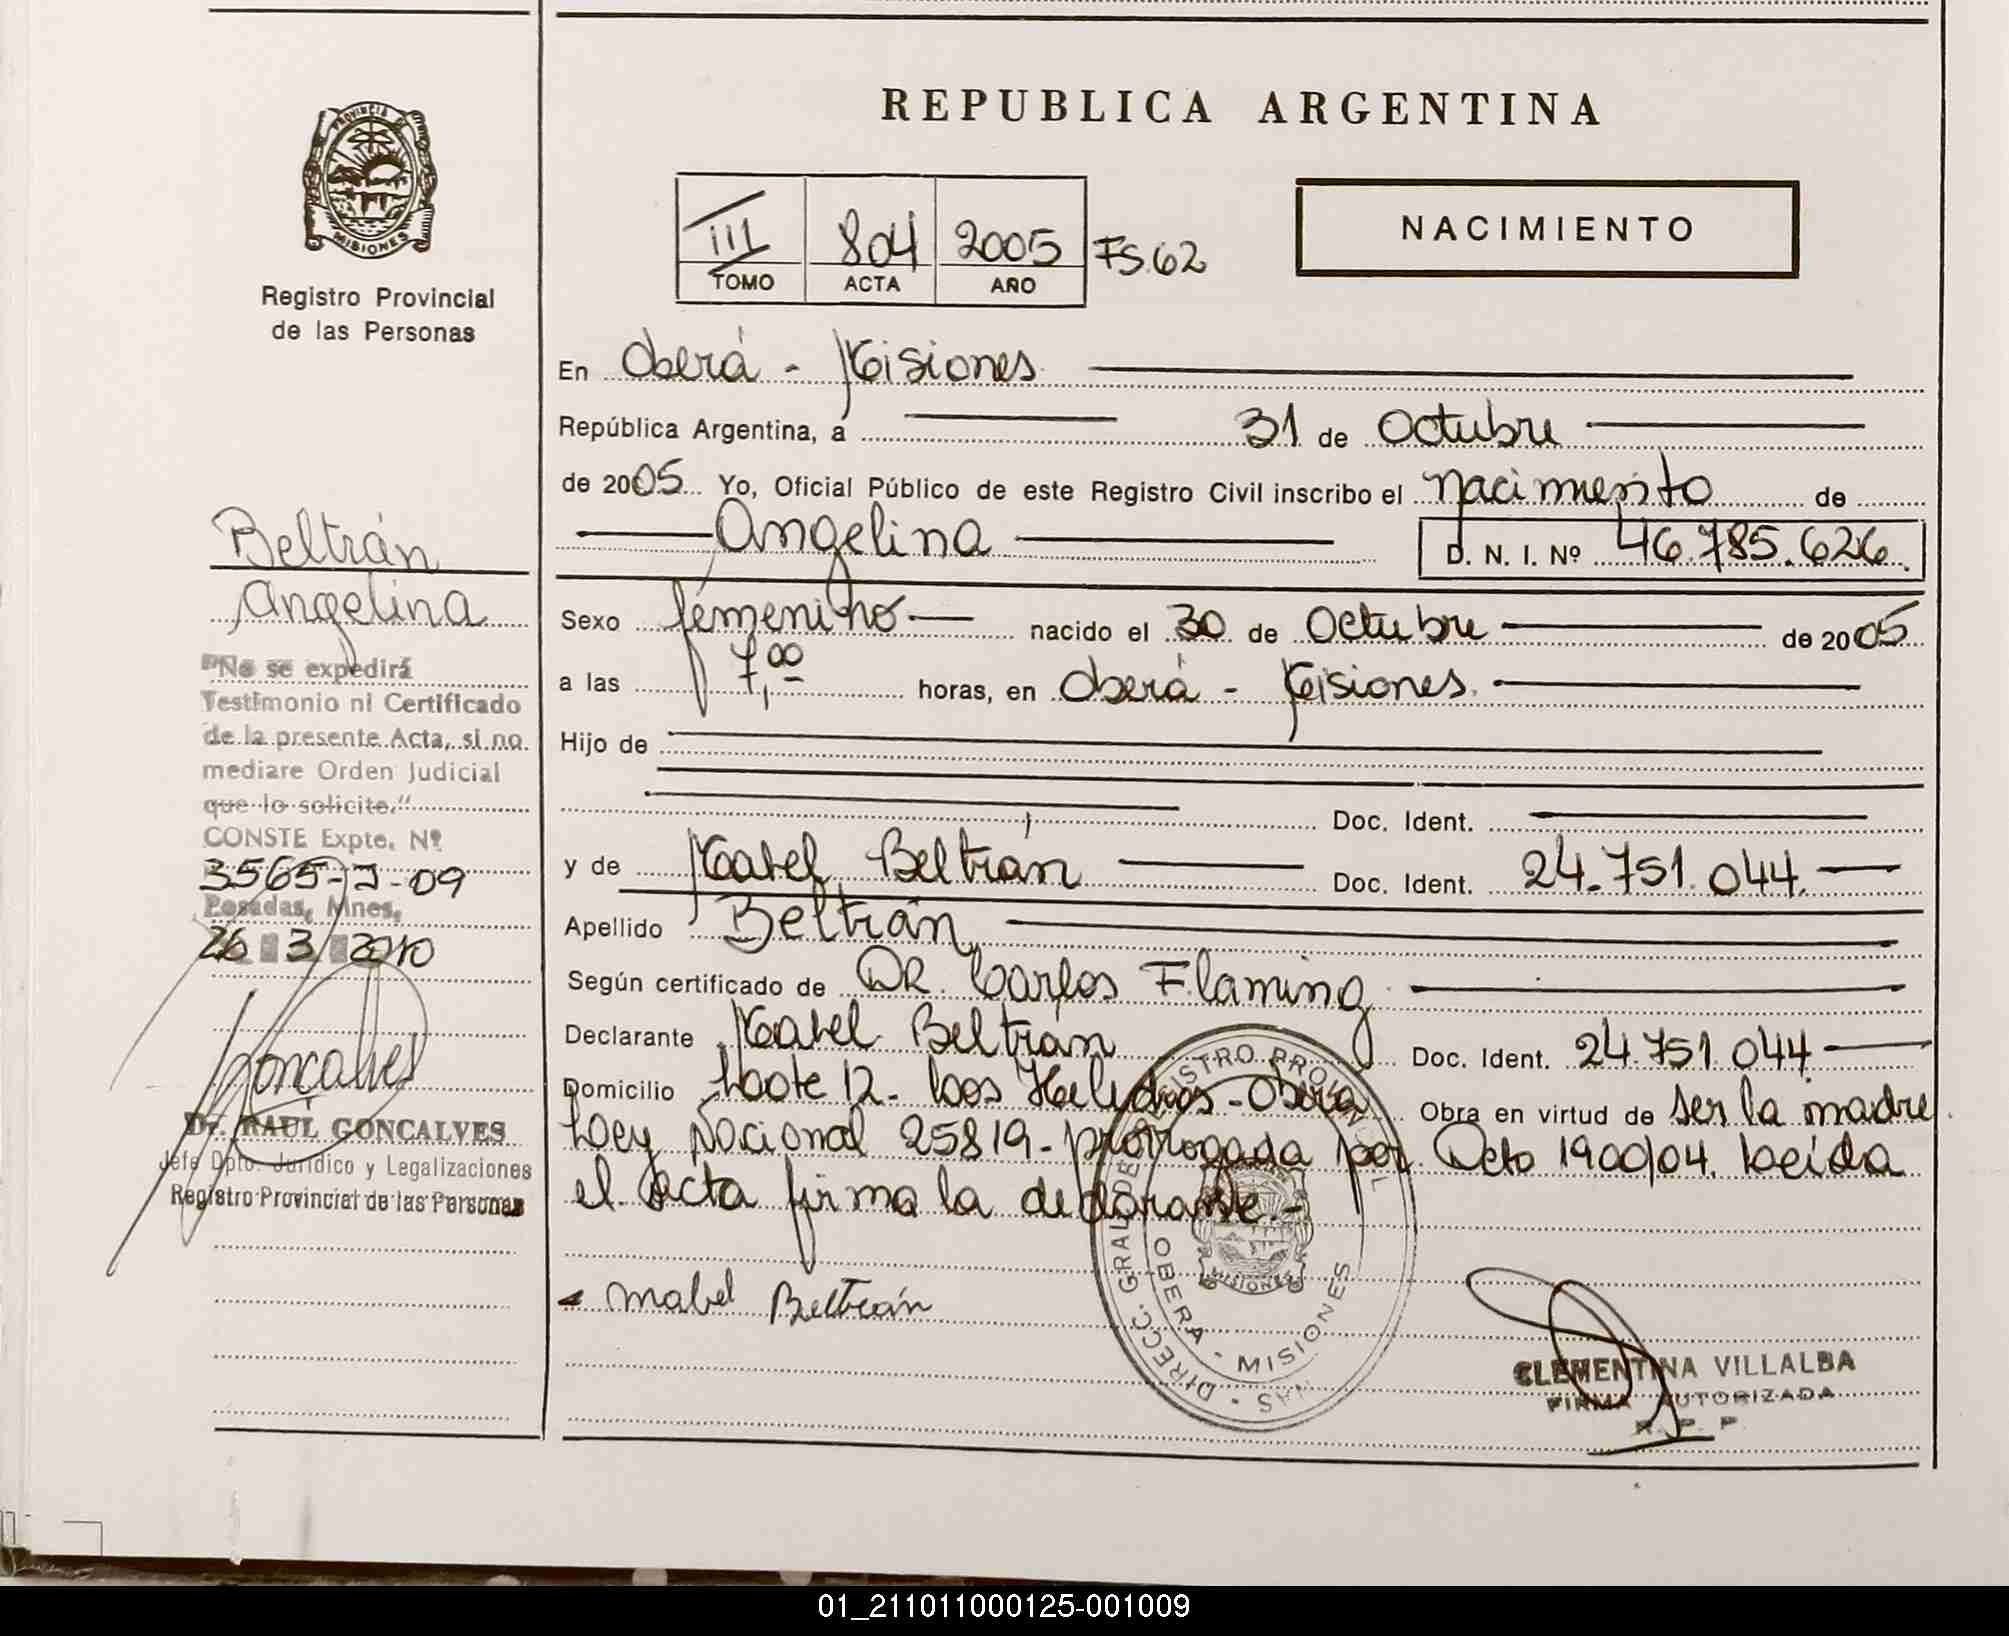 REPUBLICA ARGENTINA
PROVINCIA DE
MISIONES
Registro Provincial
de las Personas
III 804 2005 FS.62
TOMO ACTA AÑO
NACIMIENTO
En Oberá - Misiones
República Argentina, a 31 de Octubre
de 2005 Yo, Oficial Público de este Registro Civil inscribo el nacimiento de
Angelina D. N. I. Nº 46.785.626.
Sexo femenino nacido el 30 de Octubre de 2005
a las 7,00 horas, en Oberá - Misiones.
Hijo de
Doc. Ident.
y de Mabel Beltrán Doc. Ident. 24.751.044.
Apellido Beltrán
Según certificado de DR. Carlos Flaming
Declarante Mabel Beltrán Doc. Ident. 24.751.044
Domicilio Lote 12 - Los Helechos - Oberá Obra en virtud de ser la madre
Ley Nacional 25819 - prorrogada por Dcto 1900/04. Leída
el acta firma la declarante.-
Mabel Beltrán
DIRECC. GRAL. DE REGISTRO PROVINCIAL
OBERA - MISIONES
MISIONES
CLEMENTINA VILLALBA
FIRMA AUTORIZADA
R. P. P.
Beltrán
Angelina
"No se expedirá
Testimonio ni Certificado
de la presente Acta, si no
mediare Orden Judicial
que lo solicite."
CONSTE Expte. Nº
3565-J-09
Posadas, Mnes,
26 3 2010
Goncalves
Dr. RAÚL GONCALVES
Jefe Dpto. Jurídico y Legalizaciones
Registro Provincial de las Personas
01_211011000125-001009